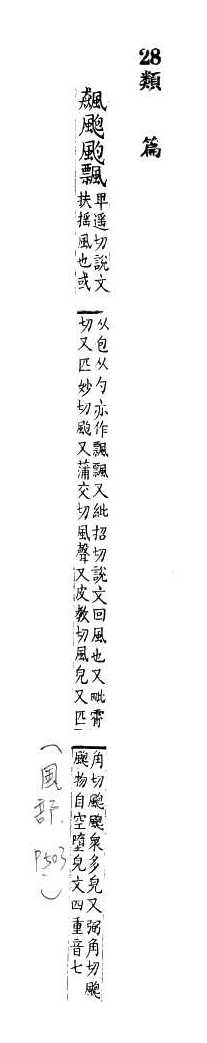 28類篇
飆颮颩飄卑遥切說文
扶揺風也或
从包从勺亦作飄飄又紕招切說文回風也又毗霄
切又匹妙切颮又蒲交切風聲又皮教切風皃又匹
角切颮颮衆多皃又弼角切颮
颮物自空墮皃文四重音七
(風部. P503)